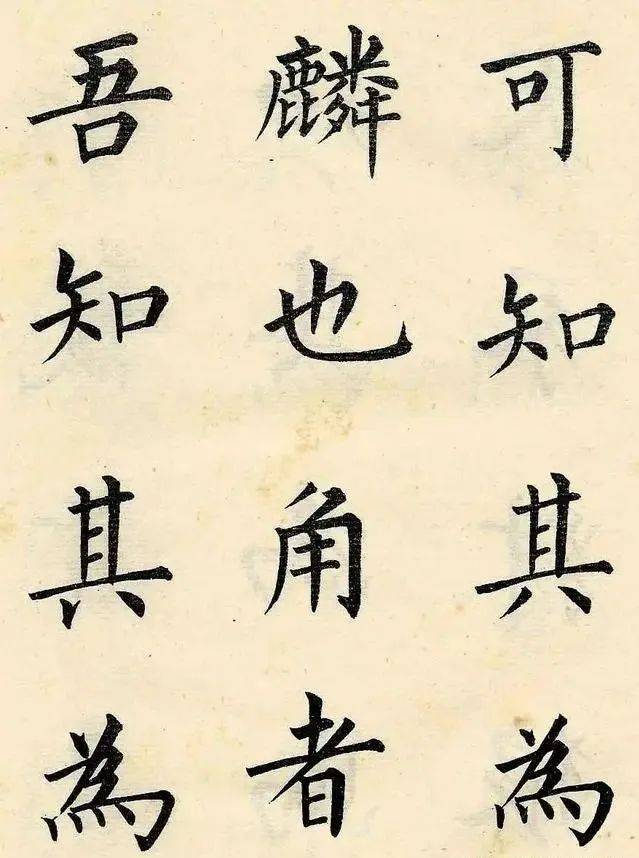 可知其為
麟也角者
吾知其為